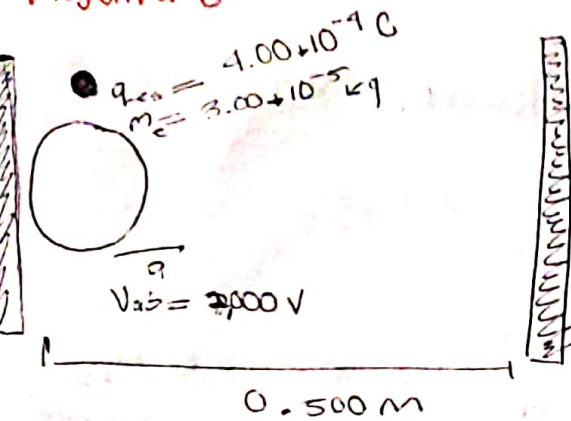 q = 4.00*10^-4 C
m_e = 3.00*10^-5 kg
a
Vab = 2000 V
0.500 m